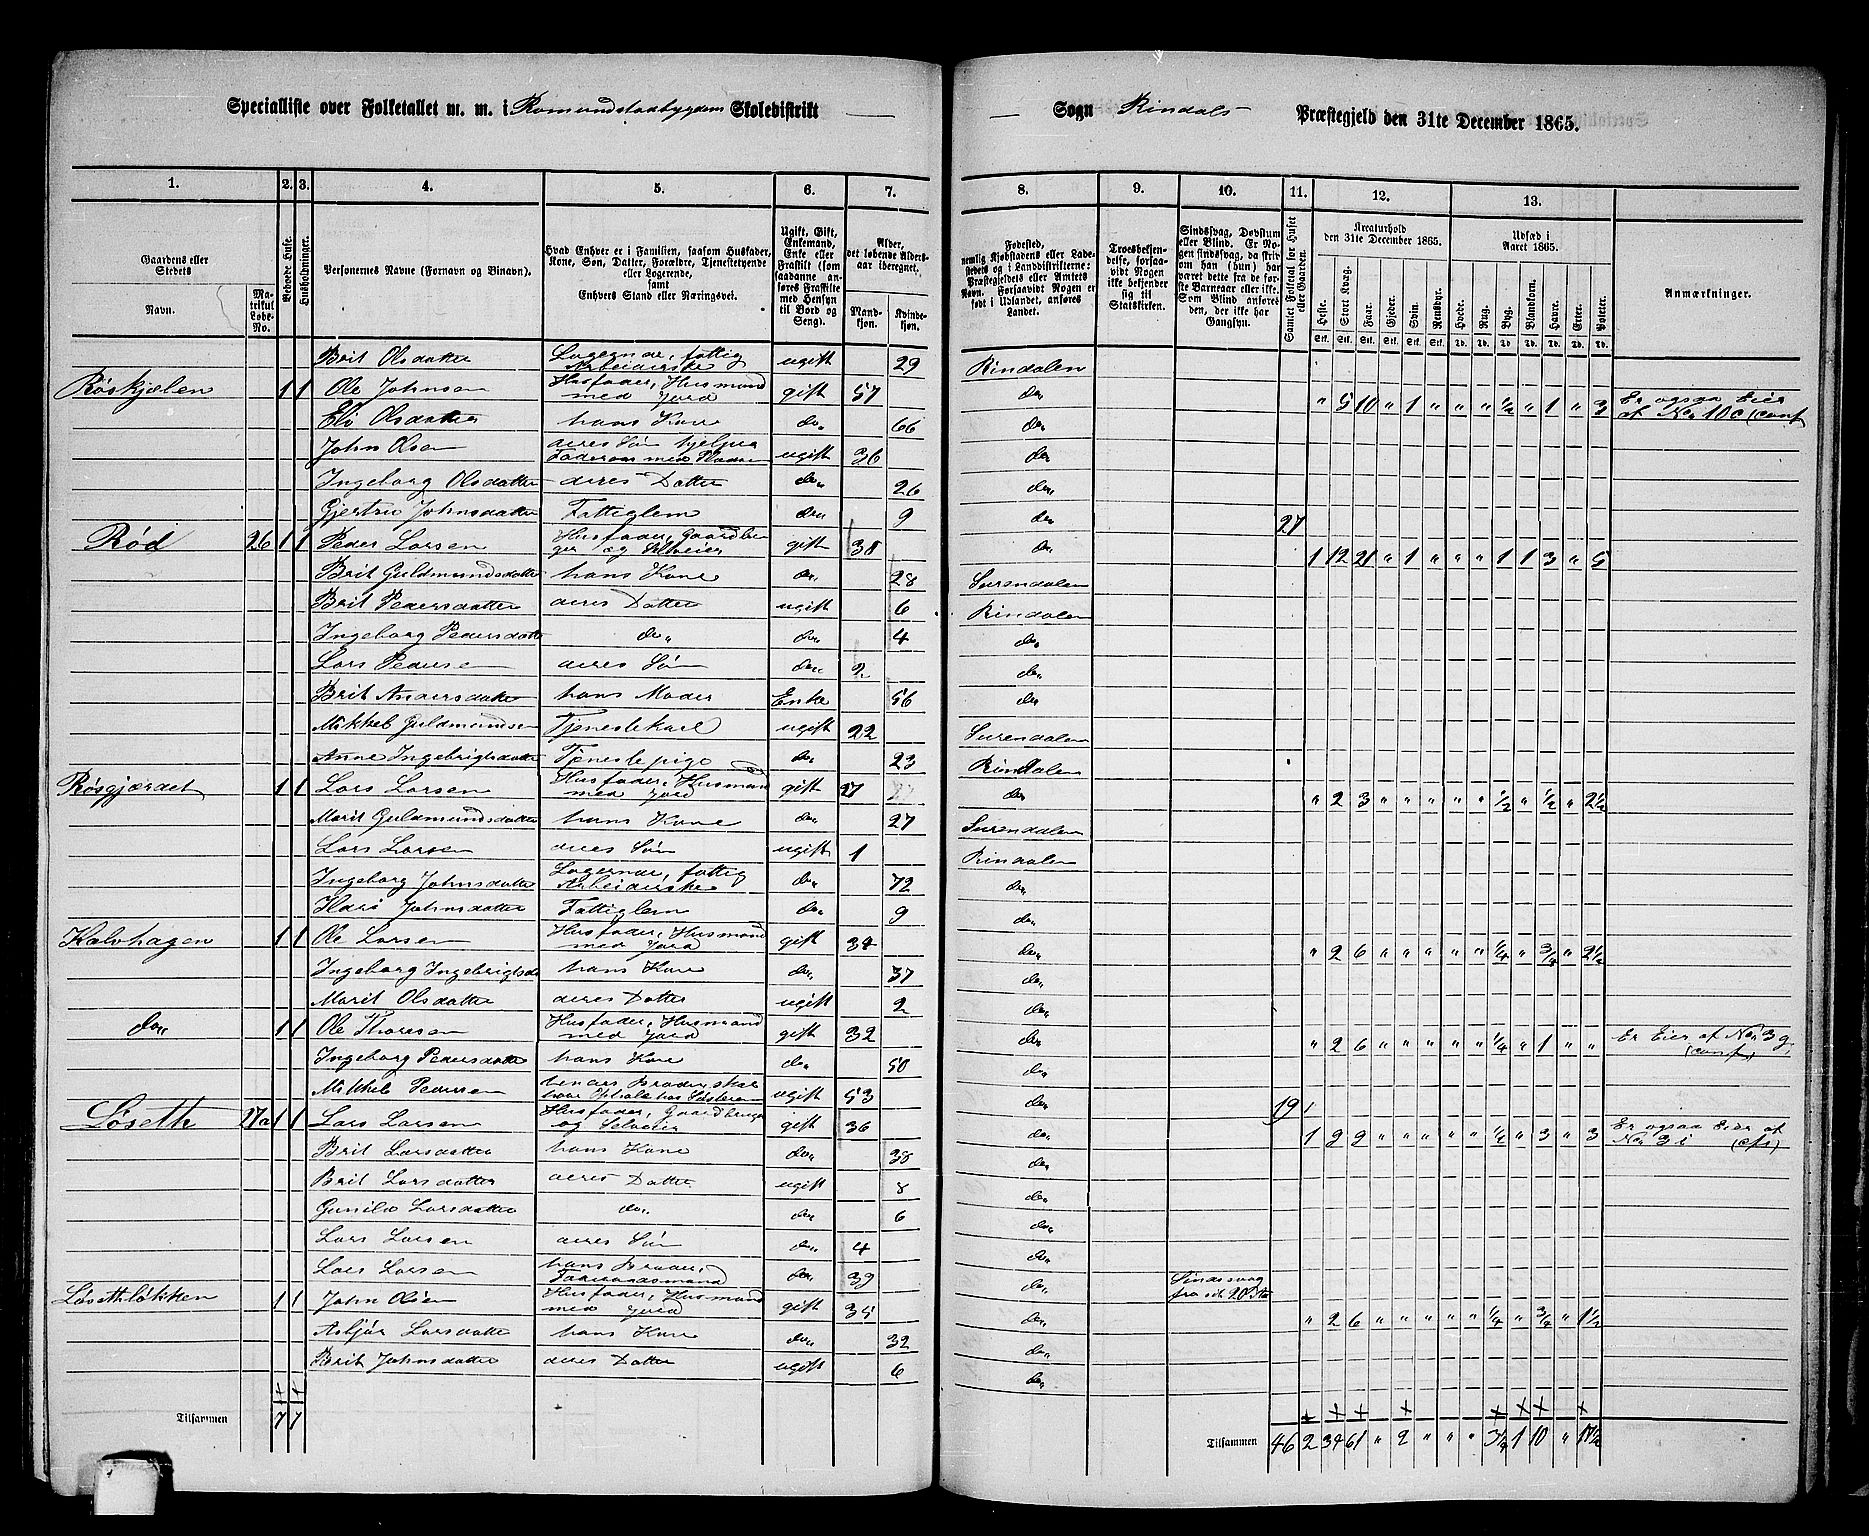 Specialliste over Folketallet m. m. i Romundstadbygdens Skoledistrikt — — Sogn Rindals Præstegjeld den 31te December 1865.
1. 2. 3. 4. 5. 6. 7. 8. 9. 10. 11. 12. 13.
Gaardens eller Stedets
Navn. Matrikul Løbe-No.
Beboede Huse.
Husholdninger.
Personernes Navne (Fornavn og Binavn).
Hvad Enhver er i Familien, saasom Husfader, Kone, Søn, Datter, Forældre, Tjenestetyende eller Logerende, samt Enhvers Stand eller Næringsvei.
Ugift, Gift, Enkemand, Enke eller Fraskilt (som saadanne anføres Fraskilte med Hensyn til Bord og Seng).
Alder, det løbende Aldersaar iberegnet.
Mandkjøn. Kvindekjøn.
Fødested, nemlig Kjøbstadens eller Ladestedets og i Landdistrikterne: Præstegjeldets eller Amtets Navn. Forsaavidt Nogen er født i Udlandet, anføres Landet.
Troesbekjendelse, forsaavidt Nogen ikke bekjender sig til Statskirken.
Sindssvag, Døvstum eller Blind. Er Nogen sindssvag, da skriv om han (hun) har været dette fra de første Barneaar eller ikke. Som Blind anføres den, der ikke har Gangsyn.
Samlet Folketal for Huset eller Gaarden.
Kreaturhold den 31te December 1865.
Heste. Stort Kvæg. Faar. Gjeder. Svin. Rensdyr.
Udsæd i Aaret 1865.
Hvede. Rug. Byg. Blandkorn. Havre. Erter. Poteter.
Anmærkninger.
Brit Olsdatter Logerende, fattig Arbeiderske ugift 29 Rindalen
Røskjølen 1 1 Ole Johnsen Husfader, Husmand med Jord gift 57 do. „ 5 10 „ 1 „ „ „ ½ „ 1 „ 3 Er ogsaa Eier af No. 10c (conf
Eli Olsdatter hans Kone do. 66 do.
John Olsen deres Søn hjelper Faderen med ugift 36 do.
Ingeborg Olsdatter deres Datter do. 26 do.
Gjertru Johnsdatter Fattiglem do. 9 do. 27
Rød 26 1 1 Peder Larsen Husfader, Gaardbruger og Selveier gift 38 do. 1 12 21 „ 1 „ „ „ 1 1 3 „ 5
Brit Guldmundsdatter hans Kone do. 28 Surendalen
Brit Pedersdatter deres Datter ugift 6 Rindalen
Ingeborg Pedersdatter do. do. 4 do.
Lars Pedersen deres Søn do. 2 do.
Brit Andersdatter hans Moder Enke 56 do.
Mikkel Guldmundsen Tjenestekarl ugift 22 Surendalen
Anne Ingebrigtsdatter Tjenestepige do. 23 Rindalen
Røsgjærdet 1 1 Lars Larsen Husfader, Husmand med Jord gift 27 do. „ 2 3 „ „ „ „ „ ½ „ ½ „ 2½
Marit Guldmundsdatter hans Kone do. 27 Surendalen
Lars Larsen deres Søn ugift 1 Rindalen
Ingeborg Johnsdatter Logerende, fattig Arbeiderske do. 72 do.
Johnsdatter Fattiglem do. 9 do.
Kalvhagen 1 1 Ole Larsen Husfader, Husmand med Jord gift 34 do. „ 2 6 „ „ „ „ „ ¼ „ ¾ „ 2½
Ingeborg Ingebrigtsd hans Kone do. 37 do.
Marit Olsdatter deres Datter ugift 2 do.
do. 1 1 Ole Thoresen Husfader, Husmand med Jord gift 32 do. „ 2 6 „ „ „ „ „ ¼ „ 1 „ „ Er Eier af No. 3g (conf)
Ingeborg Pedersdatter hans Kone do. 50 do.
Mikkel Pedersen hendes Broder, ugift 53 do. 19
Løseth 27a 1 1 Lars Larsen Husfader, Gaardbruger og Selveier gift 36 do. 1 9 9 „ „ „ „ „ ½ „ 3 „ 3 Er ogsaa Eier af No. 3i (cfs)
Brit Larsdatter hans Kone do. 38 do.
Brit Larsdatter deres Datter ugift 8 do.
Gunild Larsdatter do. do. 6 do.
Lars Larsen deres Søn do. 4 do.
Lars Larsen hans Broder, Føderaadsmand do. 39 do. Sindssvag fra sit 20de
Løsethløkken 1 1 John Olsen Husfader, Husmand med Jord gift 35 do. „ 2 6 „ „ „ „ „ ¼ „ ¾ „ 1½
Asbjør Larsdatter hans Kone do. 32 do.
Brit Johnsdatter deres Datter ugift 6 do.
Tilsammen 7 7
Tilsammen 46 2 34 61 „ 2 „ „ „ 3¼ 1 10 „ 17½